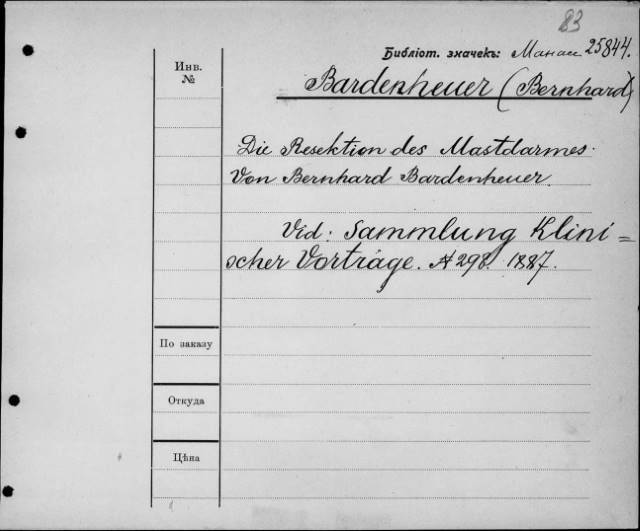 83
Библіот. значекъ: 25844.
Инв.
№
Bardenheuer (Bernhard)
Die Resektion des Mastdarmes.
Von Bernhard Bardenheuer.
Vid: Sammlung Klini=
scher Vorträge. № 298. 1887.
По заказу
Откуда
Цѣна